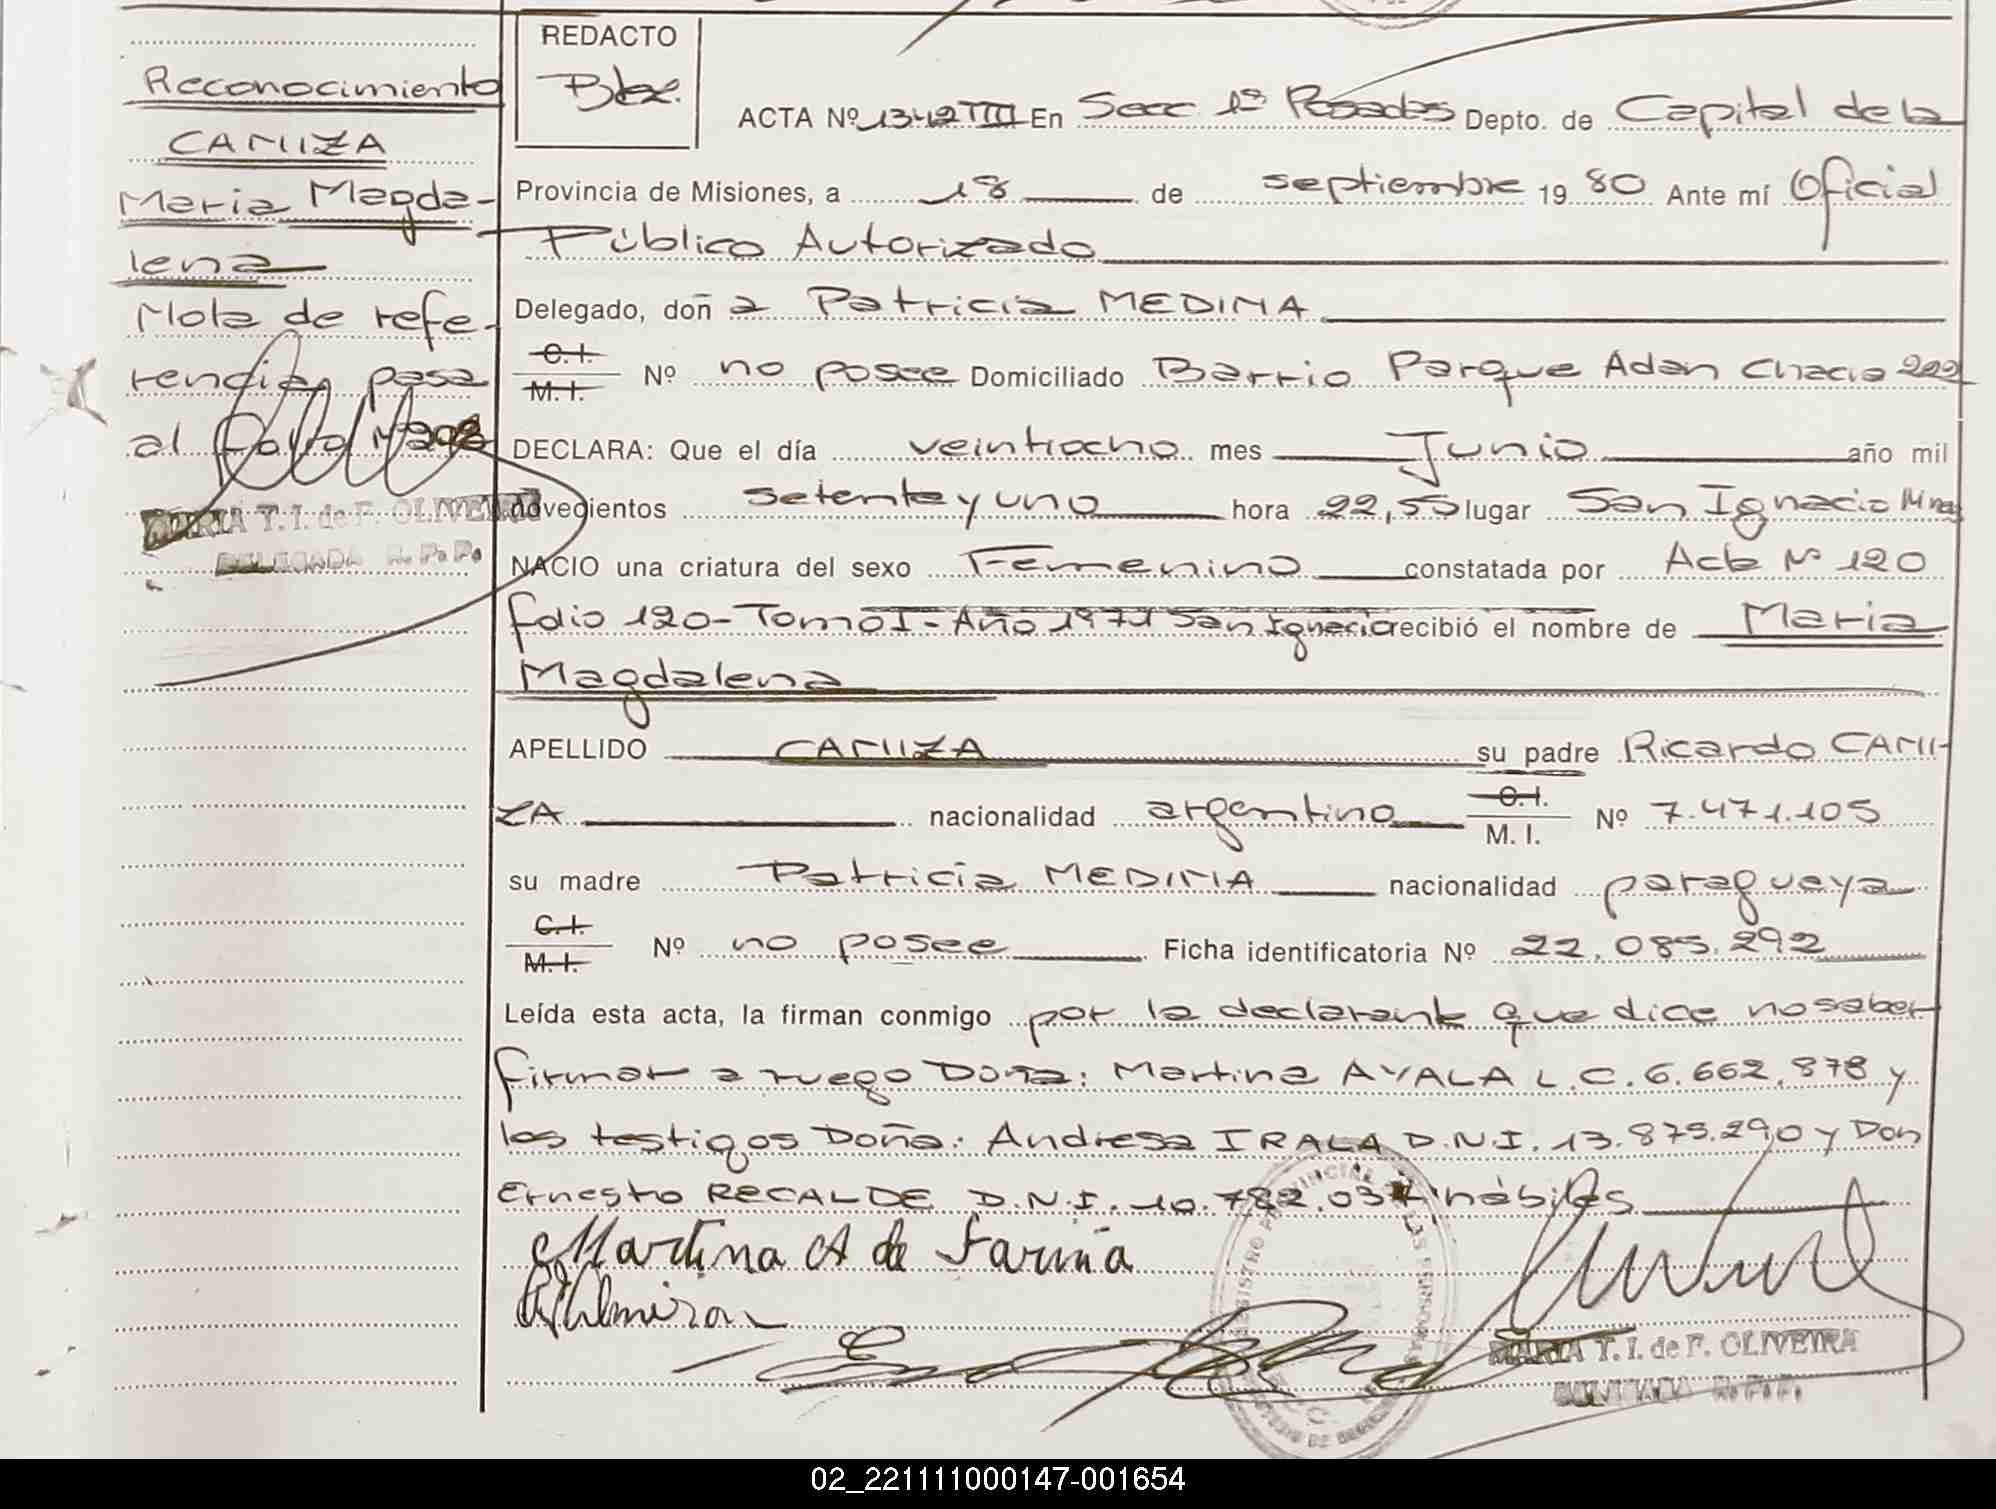 Reconocimiento
CAÑIZA
Maria Magda-
lena
Nota de refe-
rencia pasa
al folio
MARIA T. I. de F. OLIVEIRA
DELEGADA R. P. P.
REDACTO
ACTA Nº 1342 TIII En Secc 1ª Posadas Depto. de Capital de la
Provincia de Misiones, a 18 de septiembre 19 80 Ante mí Oficial
Público Autorizado
Delegado, doñ a Patricia MEDINA
C.I.
M.I. Nº no posee Domiciliado Barrio Parque Adan Chacra 222
DECLARA: Que el día veintiocho mes Junio año mil
novecientos setenta y uno hora 22,55 lugar San Ignacio Mnes
NACIO una criatura del sexo Femenino constatada por Acta Nº 120
folio 120-Tomo I-Año 1971 San Ignacio recibió el nombre de Maria
Magdalena
APELLIDO CAÑIZA su padre Ricardo CAÑI-
ZA nacionalidad argentino C.I.
M. I. Nº 7.471.105
su madre Patricia MEDINA nacionalidad paraguaya
C.I.
M.I. Nº no posee Ficha identificatoria Nº 22.085.292
Leída esta acta, la firman conmigo por la declarante que dice no saber
firmar a ruego Doña: Martina AYALA L.C. 6.662.878 y
los testigos Doña: Andresa IRALA D.N.I. 13.875.290 y Don
Ernesto RECALDE D.N.I. 10.782.037 hábiles
Martina A de Fariña
MARIA T. I. de F. OLIVEIRA
DELEGADA R. P. P.
02_221111000147-001654